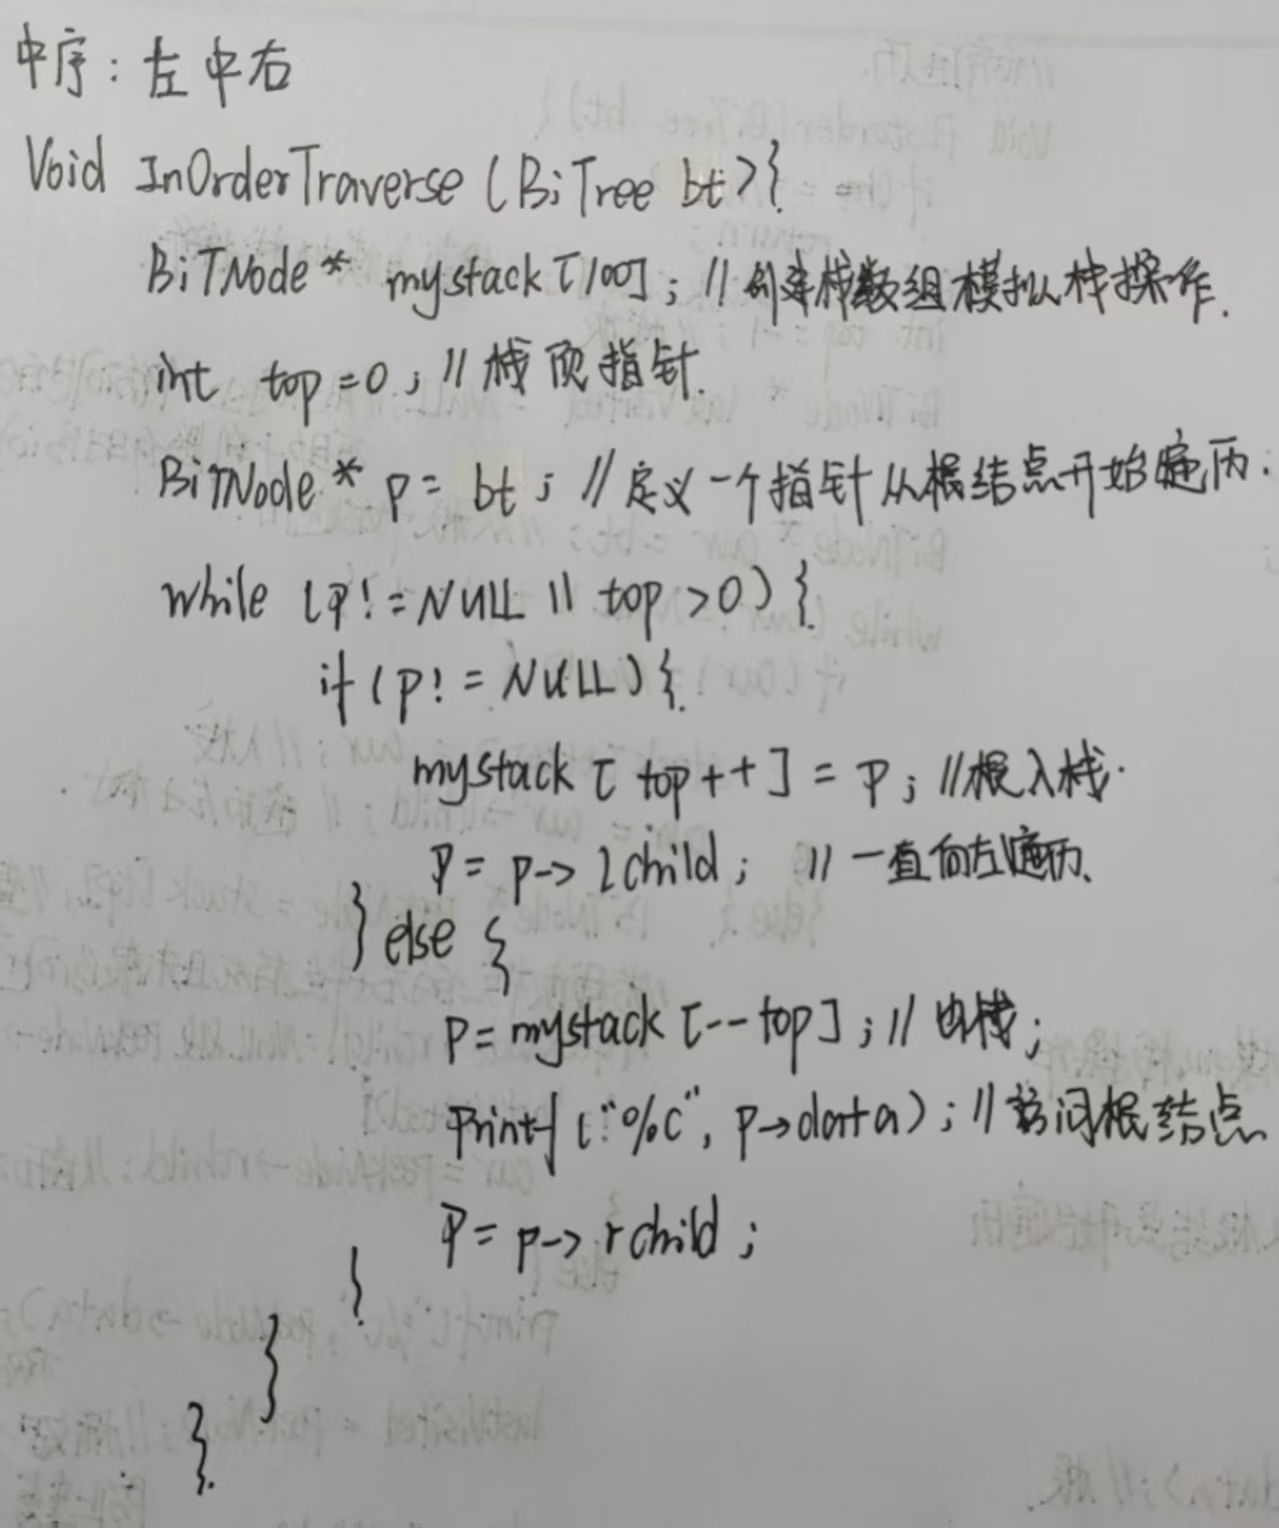 中序：左中右
Void InOrderTraverse (BiTree bt){
BiTNode* mystack[100]; //创建栈数组模拟栈操作.
int top=0; //栈顶指针.
BiTNode* p= bt; //定义一个指针从根结点开始遍历.
while (p!=NULL || top>0){
if(p!=NULL){
mystack[top++]=p; //根入栈.
p=p->lchild; //一直向左遍历.
}else{
p=mystack[--top]; //出栈;
printf("%c", p->data); //访问根结点
p=p->rchild;
}
}
}